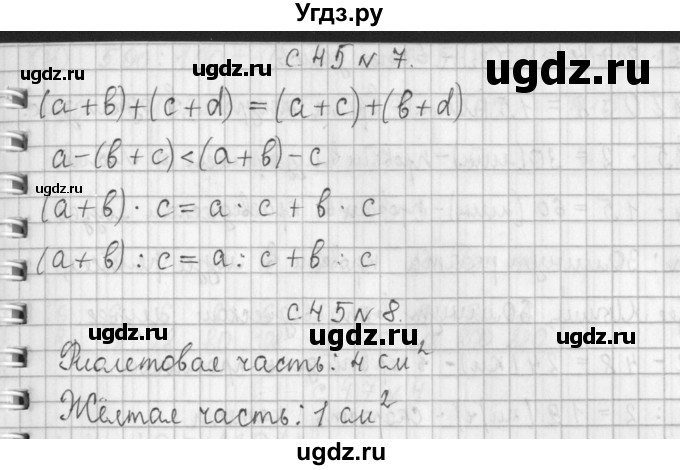 Угдз.ру
с 45 № 7.
ugdz.ru
ugdz.ru
ugdz.ru
(a+b)+(c+d) =(a+c)+(b+d)
a-(b+c)<(a+b)-c
ugdz.ru
(a+b) · c = a · c + b · c
(a+b) : c = a : c + b : c
с 45 № 8.
ugdz.ru
ugdz.ru
ugdz.ru
Фиолетовая часть: 4 см²
Жёлтая часть: 1 см²
ugdz.ru